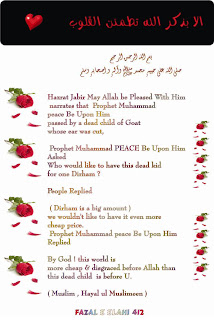 الا بذكر الله تطمئن القلوب
Hazrat Jabir May Allah be Pleased With Him
narrates that Prophet Muhammad
peace Be Upon Him
passed by a dead child of Goat
whose ear was cut,
Prophet Muhammad PEACE Be Upon Him
Ashed
Who would like to have this dead kid
for one Dirham ?
People Replied
( Dirham is a big amount )
we wouldn't like to have it even more
cheap price.
Prophet Muhammad peace Be Upon Him
Replied
By God ! this world is
more cheap & disgraced before Allah than
this dead child is before U.
( Muslim , Hayal ul Muslimeen )
FAZAL E ELAHI 412